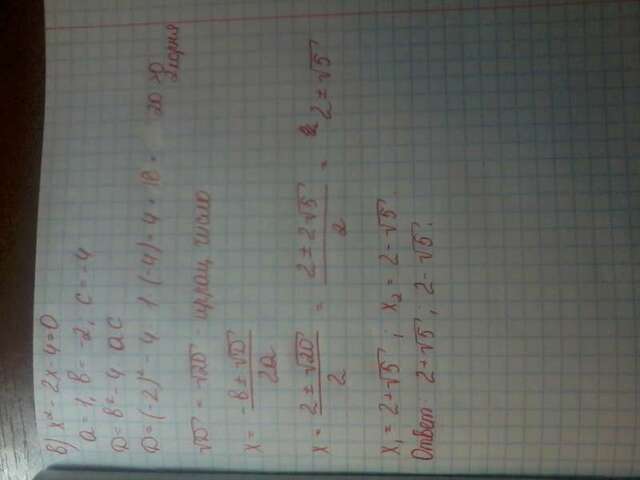 в) x² - 2x - 4 = 0
a = 1, в = -2, c = -4
D = в² - 4 ac
D = (-2)² - 4 · 1 (-4) = 4 + 16 = 20 >0 2 корня
√D = √20 - иррац. число
x = -в ± √D / 2a
x = 2 ± √20 / 2 = 2 ± 2√5 / 2 = 2 ± √5
x₁ = 2 + √5 ; x₂ = 2 - √5.
Ответ: 2 + √5 ; 2 - √5.